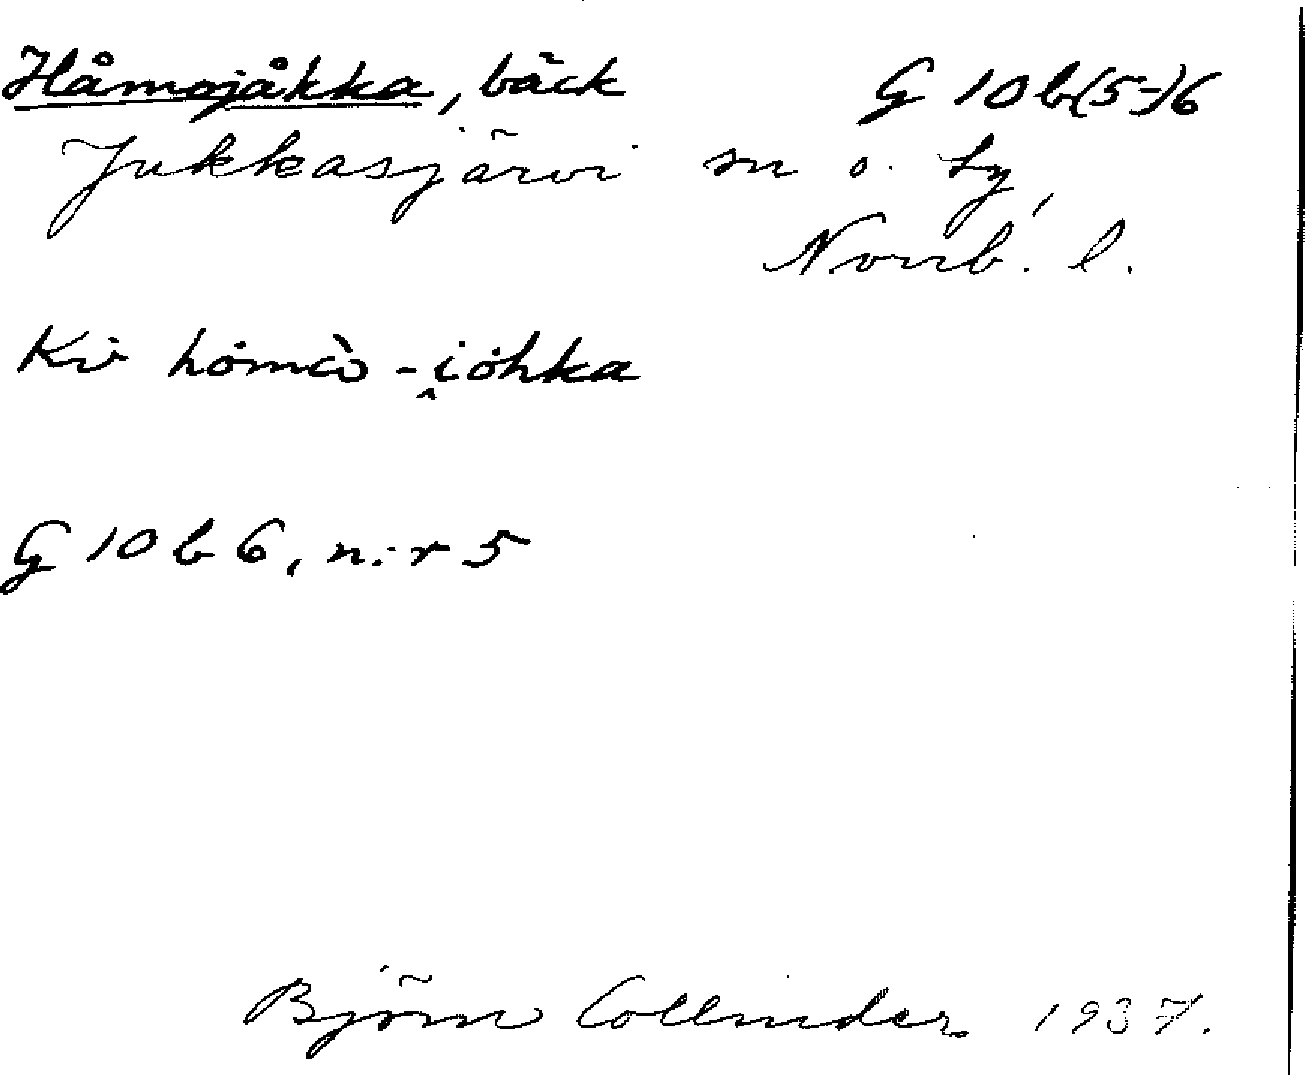 Håmojåkka, bäck G 10 b(5-)6
Jukkasjärvi sn o. ty,
Norrb. l.
G 10 b 6, n:r 5
Björn Collinder 1937.